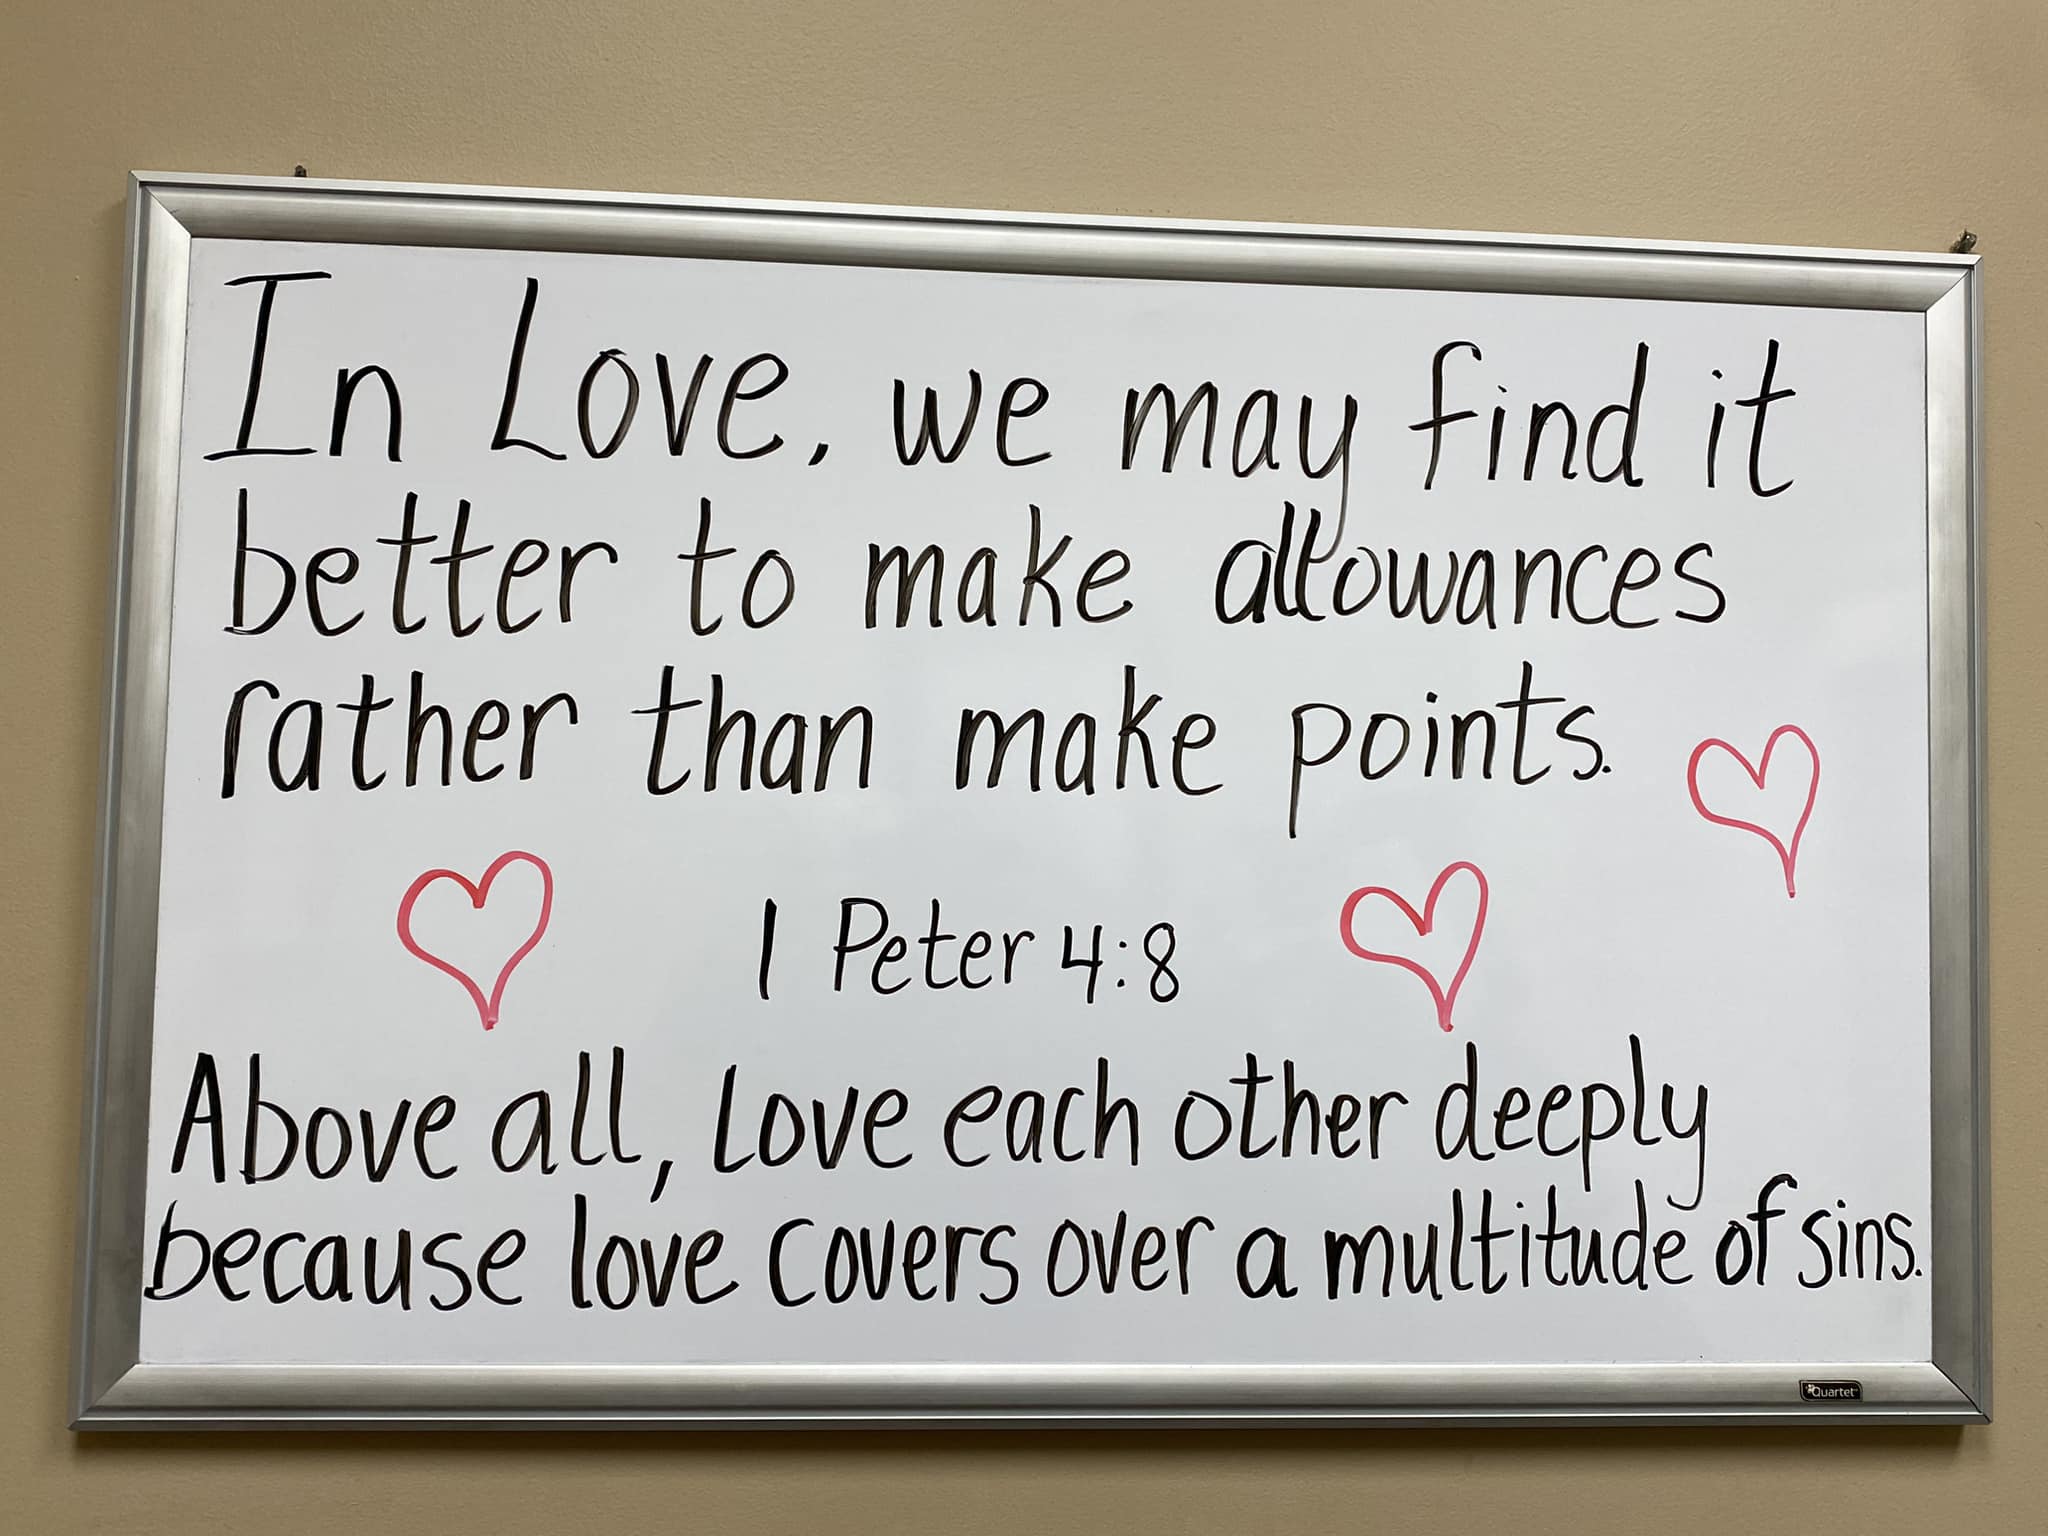 In Love, we may find it
better to make allowances
rather than make points.
1 Peter 4:8
Above all, Love each other deeply
because love covers over a multitude of sins.
Quartet